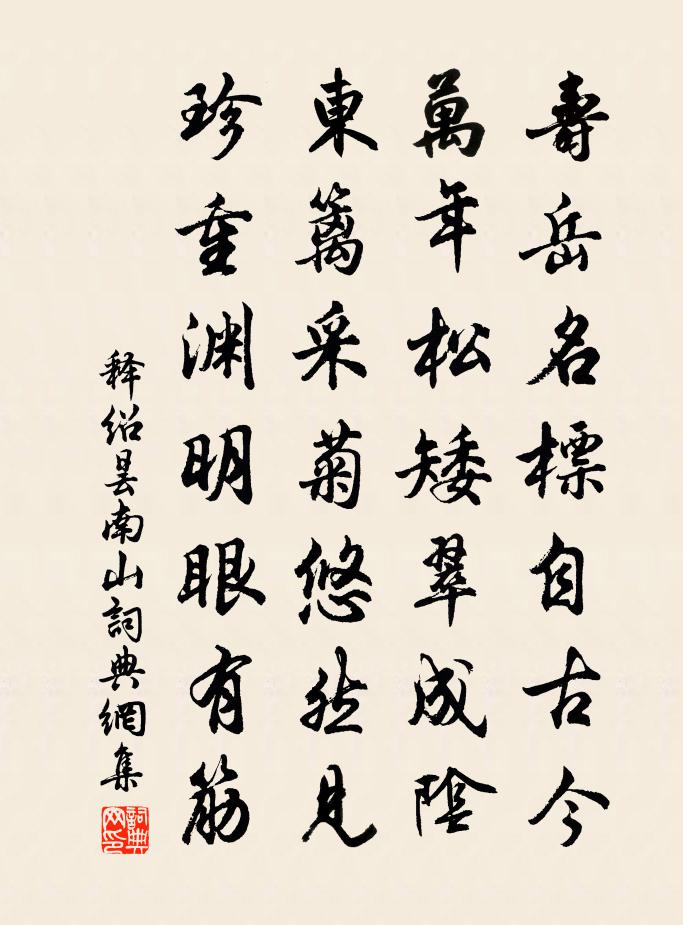 壽岳名標自古今
萬年松矮翠成陰
東籬采菊悠然見
珍重淵明眼有筋
释绍昙南山詞典網集
詞典网印